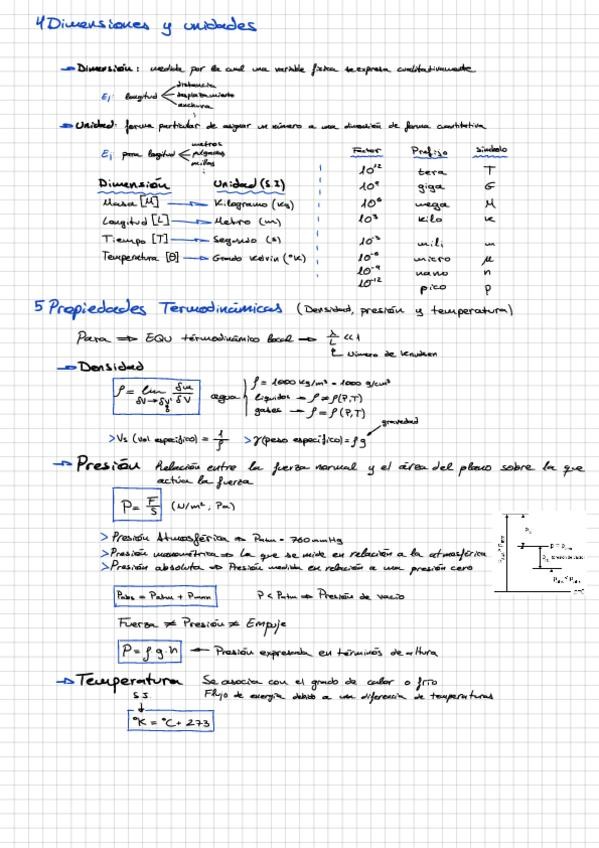 4 Dimensiones y unidades
→ Dimensión: medida por la cual una variable física se expresa cualitativamente
Ej: longitud
distancia
desplazamiento
anchura
→ Unidad: forma particular de asignar un número a una dimensión de forma cuantitativa
Ej para longitud
metros
pulgadas
millas
Dimensión Unidad (S.I)
Masa [M] → Kilogramo (Kg)
Longitud [L] → Metro (m)
Tiempo [T] → Segundo (s)
Temperatura [θ] → Grado Kelvin (°K)
Factor Prefijo símbolo
10¹² tera T
10⁹ giga G
10⁶ mega M
10³ kilo k
10⁻³ mili m
10⁻⁶ micro μ
10⁻⁹ nano n
10⁻¹² pico p
5 Propiedades Termodinámicas (Densidad, presión y temperatura)
Para ⇒ EQU térmodinámico local → λ/L <<1
Número de Knudsen
→ Densidad
ρ = lim δV→δV' δm/δV
agua
ρ = 1000 kg/m³ = 1000 g/cm³
líquidos → ρ ≠ ρ(P,T)
gases → ρ = ρ(P,T)
gravedad
> Vs (vol específico) = 1/ρ > γ (peso específico) = ρg
→ Presión Relación entre la fuerza normal y el área del plano sobre la que
actúa la fuerza
P = F/S (N/m², Pa)
> Presión Atmosférica ⇒ Patm = 760 mmHg
> Presión manométrica ⇒ La que se mide en relación a la atmosférica
> Presión absoluta ⇒ Presión medida en relación a una presión cero
Pabs = Patm + Pman P < Patm ⇒ Presión de vacío
Fuerza ≠ Presión ≠ Empuje
P = ρ g·h ← Presión expresada en términos de altura
→ Temperatura Se asocia con el grado de calor o frío
Flujo de energía debido a una diferencia de temperaturas
S.I.
°K = °C + 273